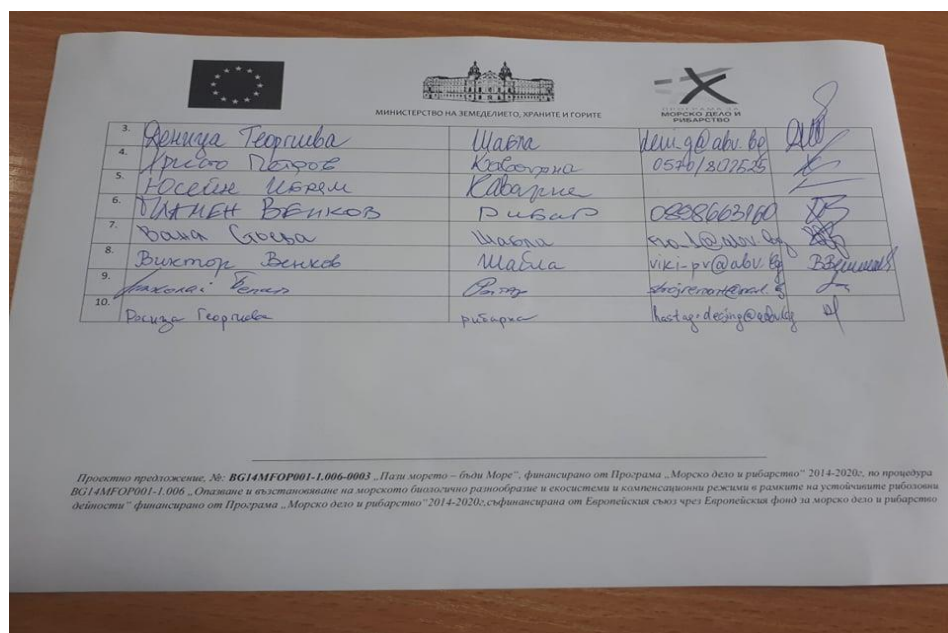 МИНИСТЕРСТВО НА ЗЕМЕДЕЛИЕТО, ХРАНИТЕ И ГОРИТЕ
ПРОГРАМА ЗА
МОРСКО ДЕЛО И
РИБАРСТВО
3. Деница Георгиева Шабла deni.g@abv.bg
4. Христо Петров Каварна
5. Юсеин Каварна
6. ПЛАМЕН ВЕНКОВ РИБАР 0898663160
7. Стоева Шабла
8. Виктор Венков Шабла viki-pv@abv.bg
9. Николай
10. Росица Георгиева рибарка
Проектно предложение, №: BG14MFOP001-1.006-0003 „Пази морето – бъди Море“, финансирано от Програма „Морско дело и рибарство“ 2014-2020г, по процедура
BG14MFOP001-1.006 „Опазване и възстановяване на морското биологично разнообразие и екосистеми и компенсационни режими в рамките на устойчивите риболовни
дейности“ финансирано от Програма „Морско дело и рибарство“ 2014-2020г,съфинансирана от Европейския съюз чрез Европейския фонд за морско дело и рибарство